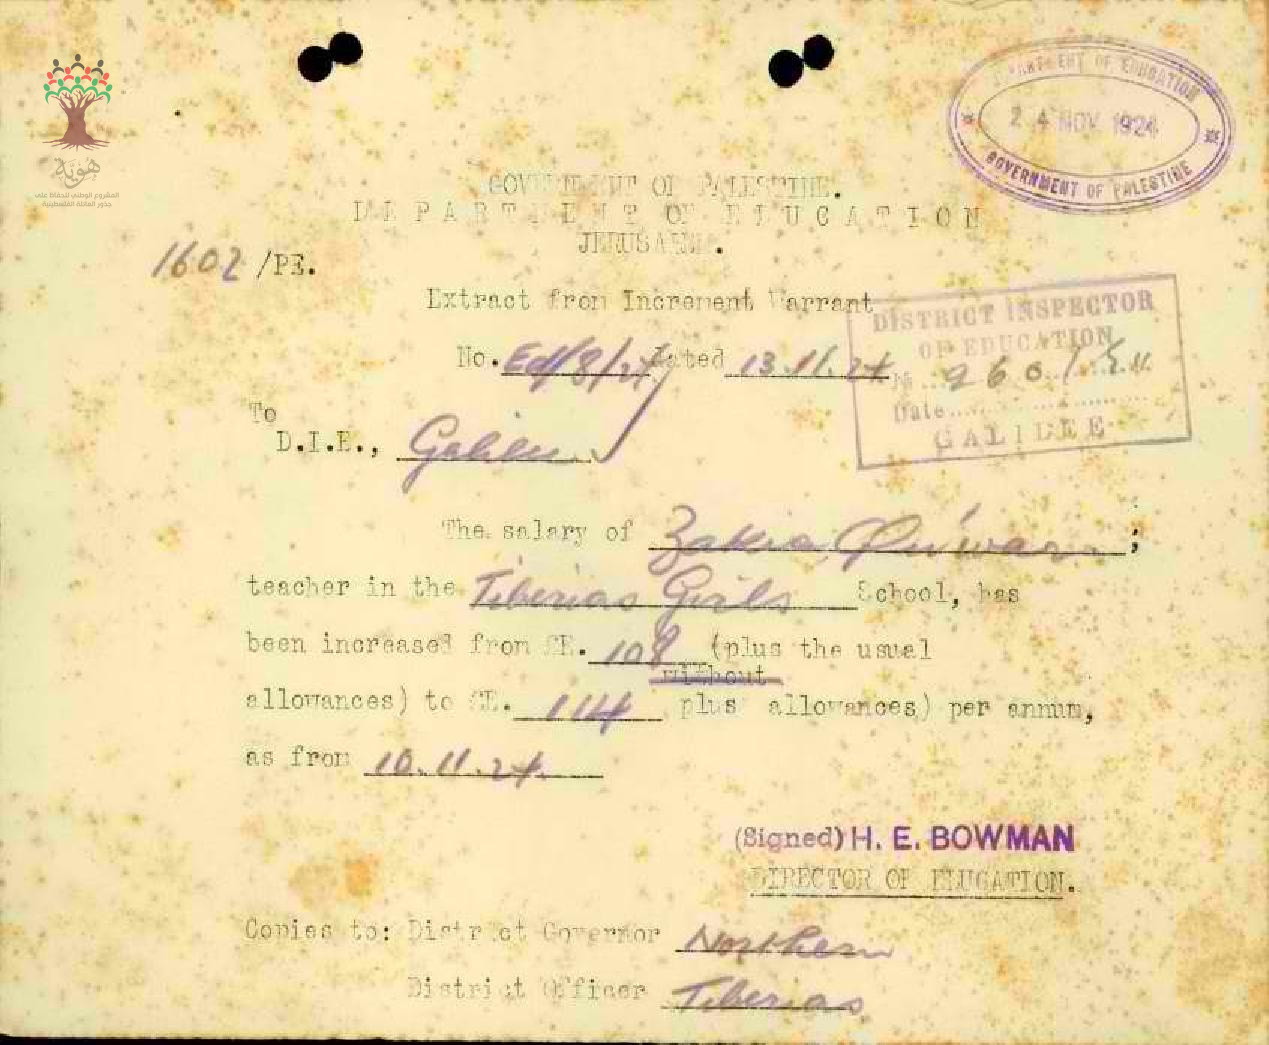 هوية
المشروع الوطني للحفاظ على
جذور العائلة الفلسطينية
DEPARTMENT OF EDUCATION
24 NOV 1924
GOVERNMENT OF PALESTINE
GOVERNMENT OF PALESTINE.
DEPARTMENT OF EDUCATION
JERUSALEM.
1602 /PE.
Extract from Increment Warrant
No. Ed/8/24 dated 13.11.24
DISTRICT INSPECTOR
OF EDUCATION
No 260/
Date
GALILEE
To
D.I.E., Galilee
The salary of Zakia ;
teacher in the Tiberias Girls School, has
been increased from £E. 108 (plus the usual
without
allowances) to £E. 114 plus allowances) per annum,
as from 10.11.24.
(Signed) H. E. BOWMAN
DIRECTOR OF EDUCATION.
Copies to: District Governor Northern
District Officer Tiberias